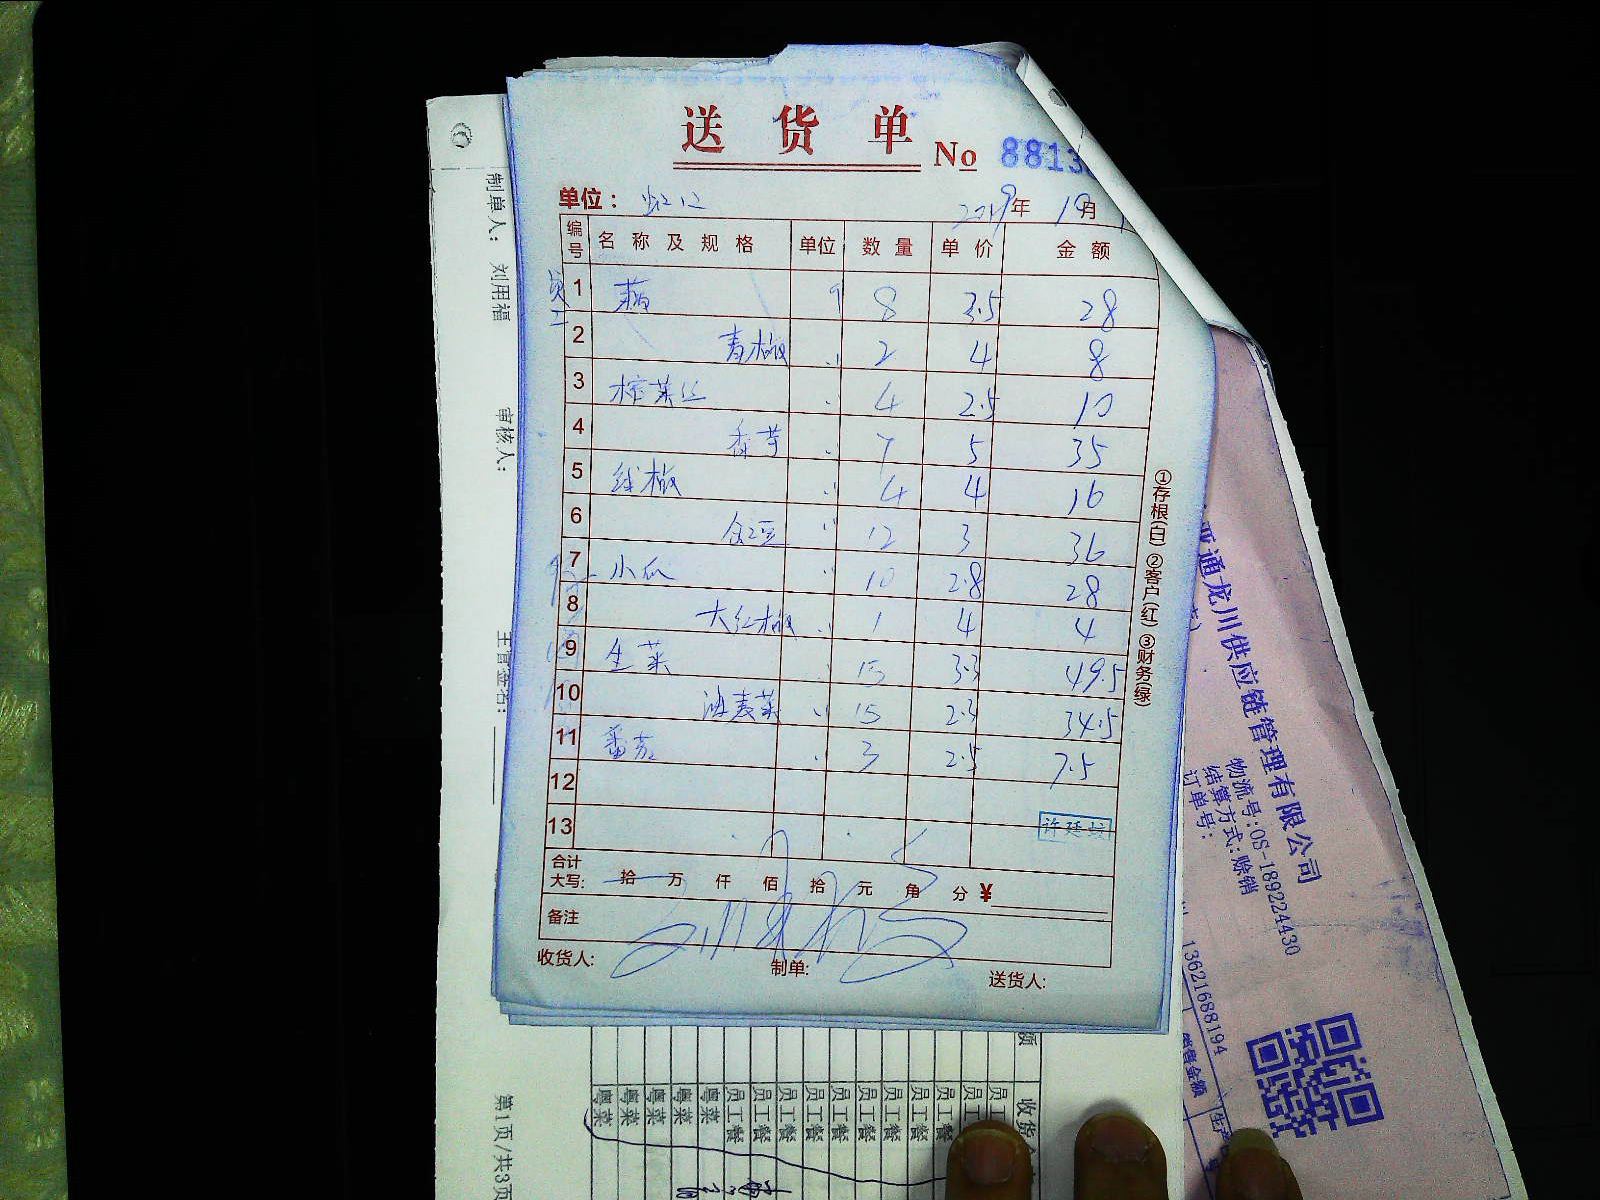 送货单
No 8813
单位： 虹口 2019年 10月
编号 名称及规格 单位 数量 单价 金额
员工
1 藕 斤 8 3.5 28
2 青椒 〃 2 4 8
3 榨菜丝 〃 4 2.5 10
4 香芋 〃 7 5 35
5 线椒 〃 4 4 16
6 12 3 36
7 小瓜 〃 10 2.8 28
8 大红椒 〃 1 4 4
9 生菜 〃 15 3.3 49.5
10 油麦菜 〃 15 2.3 34.5
11 番茄 〃 3 2.5 7.5
12
13
合计
大写： 拾 万 仟 佰 拾 元 角 分 ¥
备注
收货人： 制单： 送货人：
①存根(白) ②客户(红) ③财务(绿)
制单人： 刘用福
审核人：
主管签名：
第1页/共3页
亚通龙川供应链管理有限公司
物流号:OS-189224430
结算方式: 赊销
订单号:
13621688194
销售金额
额
收货
员工餐
员工餐
员工餐
员工餐
员工餐
员工餐
员工餐
员工餐
员工餐
粤菜
粤菜
粤菜
粤菜
粤菜